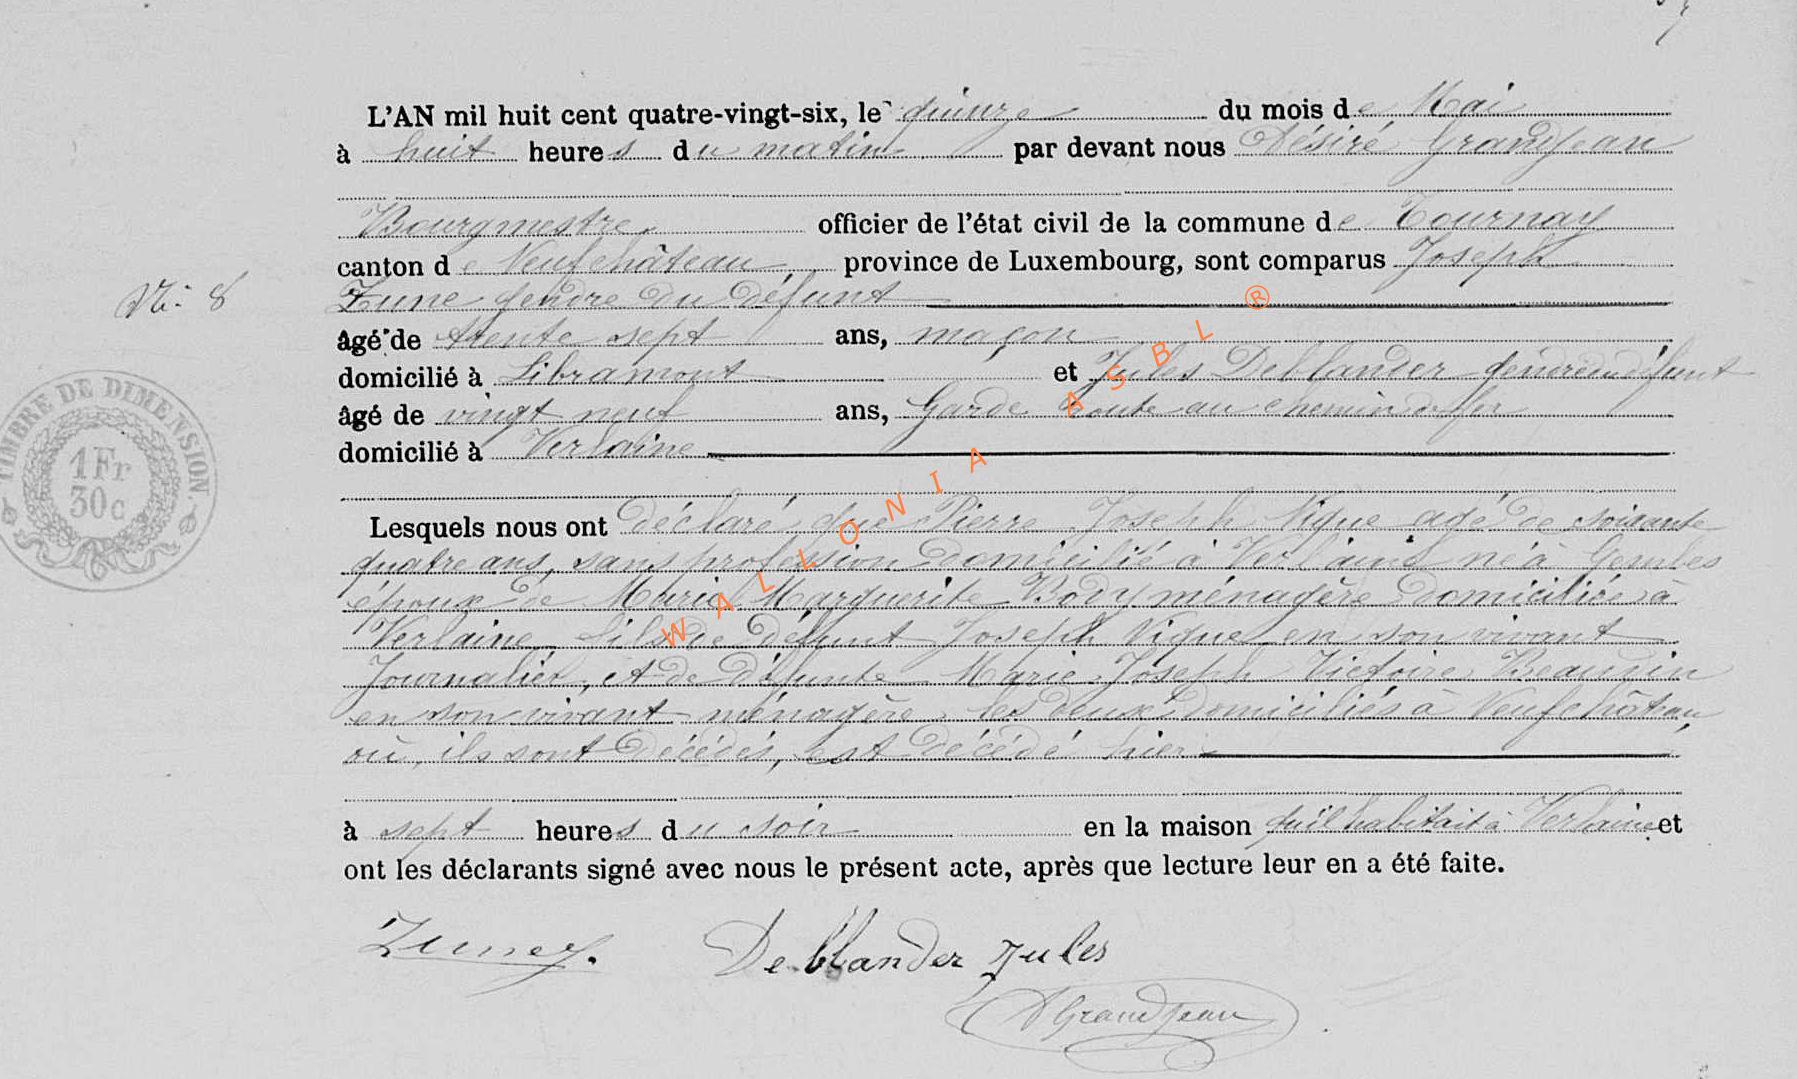 L'AN mil huit cent quatre-vingt-six, le quinze du mois de Mai
à huit heures du matin par devant nous Désiré Grandjean
Bourgmestre officier de l'état civil de la commune de Tournay
canton de Neufchâteau, province de Luxembourg, sont comparus Joseph
N: 8
Zune gendre du défunt
âgé de trente sept ans, maçon
domicilié à Libramont et Jules Deblander gendre du défunt
âgé de vingt neuf ans, Garde route au chemin de fer
domicilié à Verlaine
TIMBRE DE DIMENSION.
1Fr
30c
Lesquels nous ont déclaré que Pierre Joseph Nique agé de soixante
quatre ans, sans profession domicilié à Verlaine né à Gembes
époux de Marie Marguerite Body ménagère domiciliée à
Verlaine, fils de défunt Joseph Nique en son vivant
Journalier, et de défunte Marie Joseph Victoire
en son vivant ménagère, les deux domiciliés à Neufchâteau,
où, ils sont décédés, est décédé hier
à sept heures du soir en la maison qu'il habitait à Verlaine et
ont les déclarants signé avec nous le présent acte, après que lecture leur en a été faite.
Zune J.
Deblander Jules
D Grandjean
WALLONIA ASBL ®